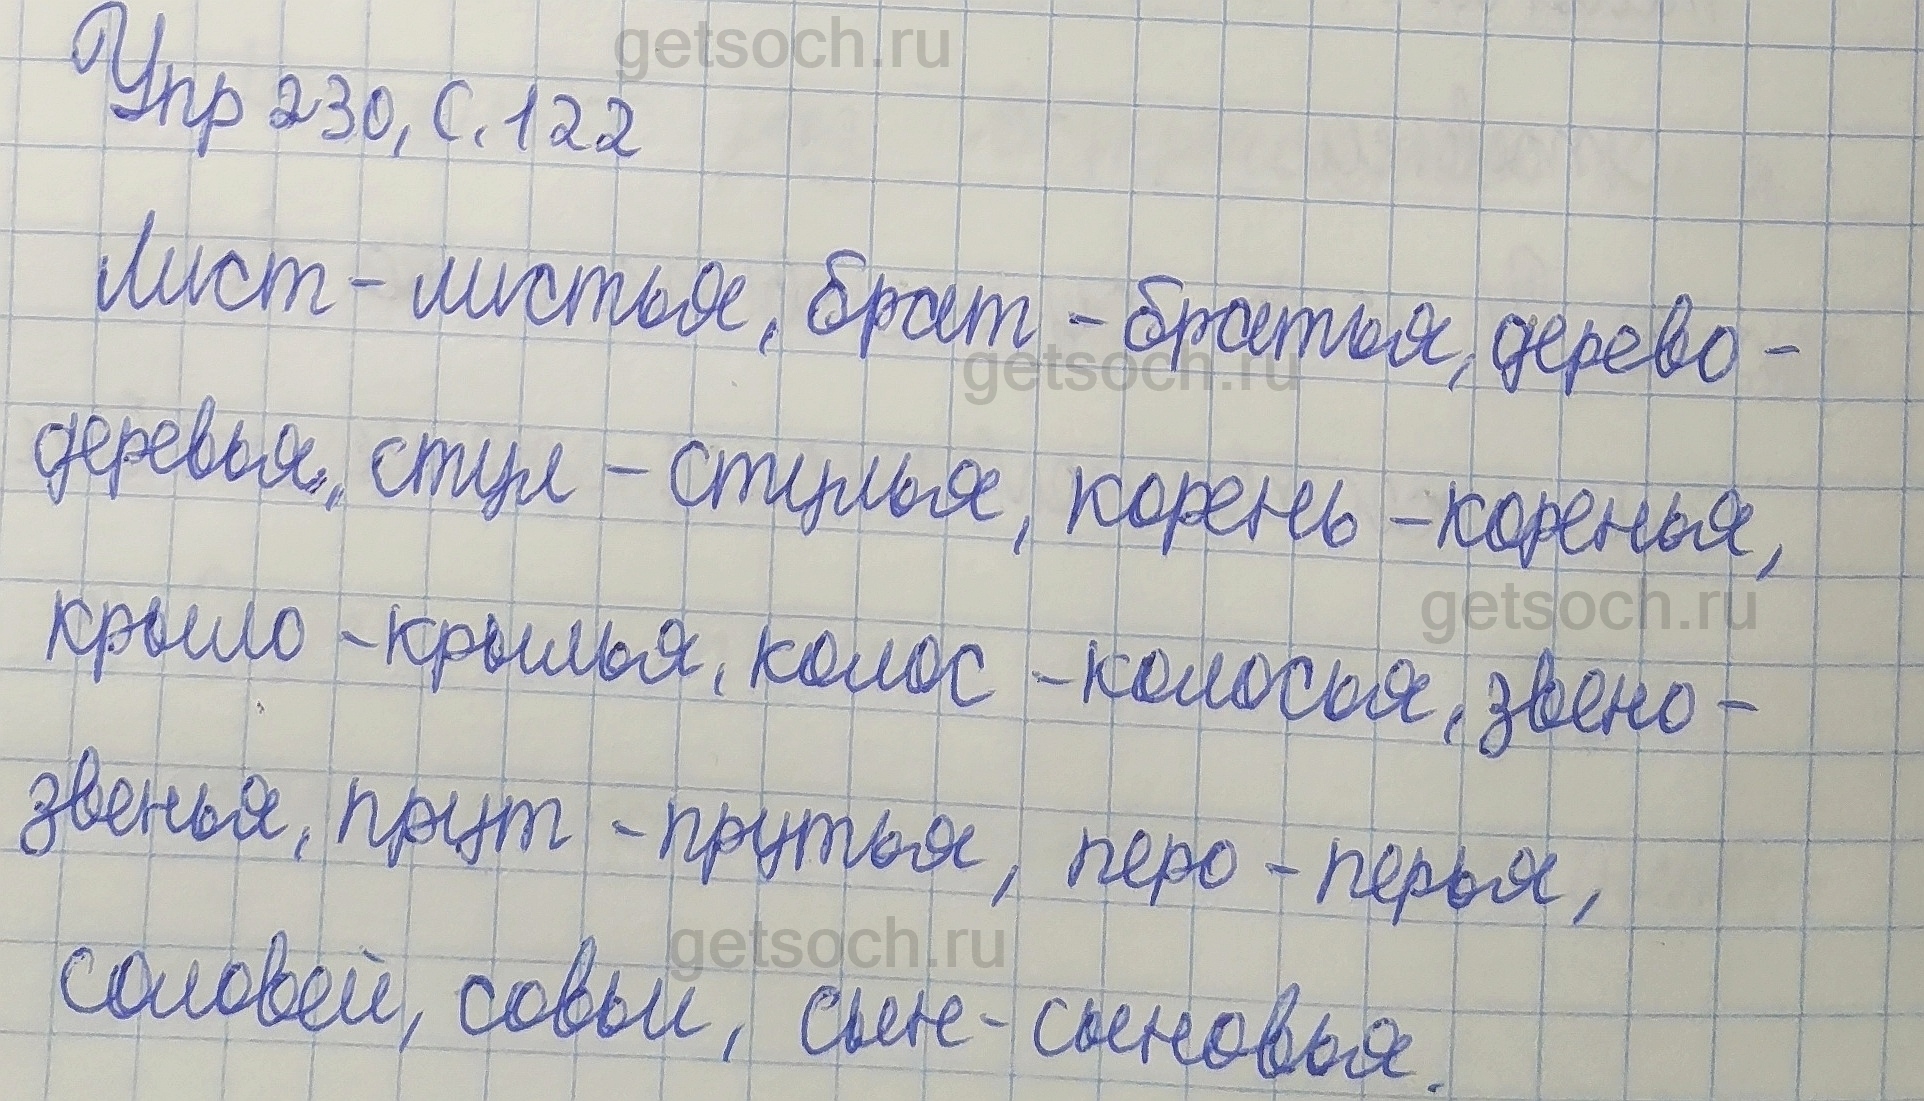 getsoch.ru
Упр 230, с. 122
Лист - листья, брат - братья, дерево -
getsoch.ru
деревья,, стул - стулья, корень - коренья,
getsoch.ru
крыло - крылья, колос - колосья, звено -
звенья, прут - прутья, перо - перья,
getsoch.ru
соловей, совьи, сын - сыновья.